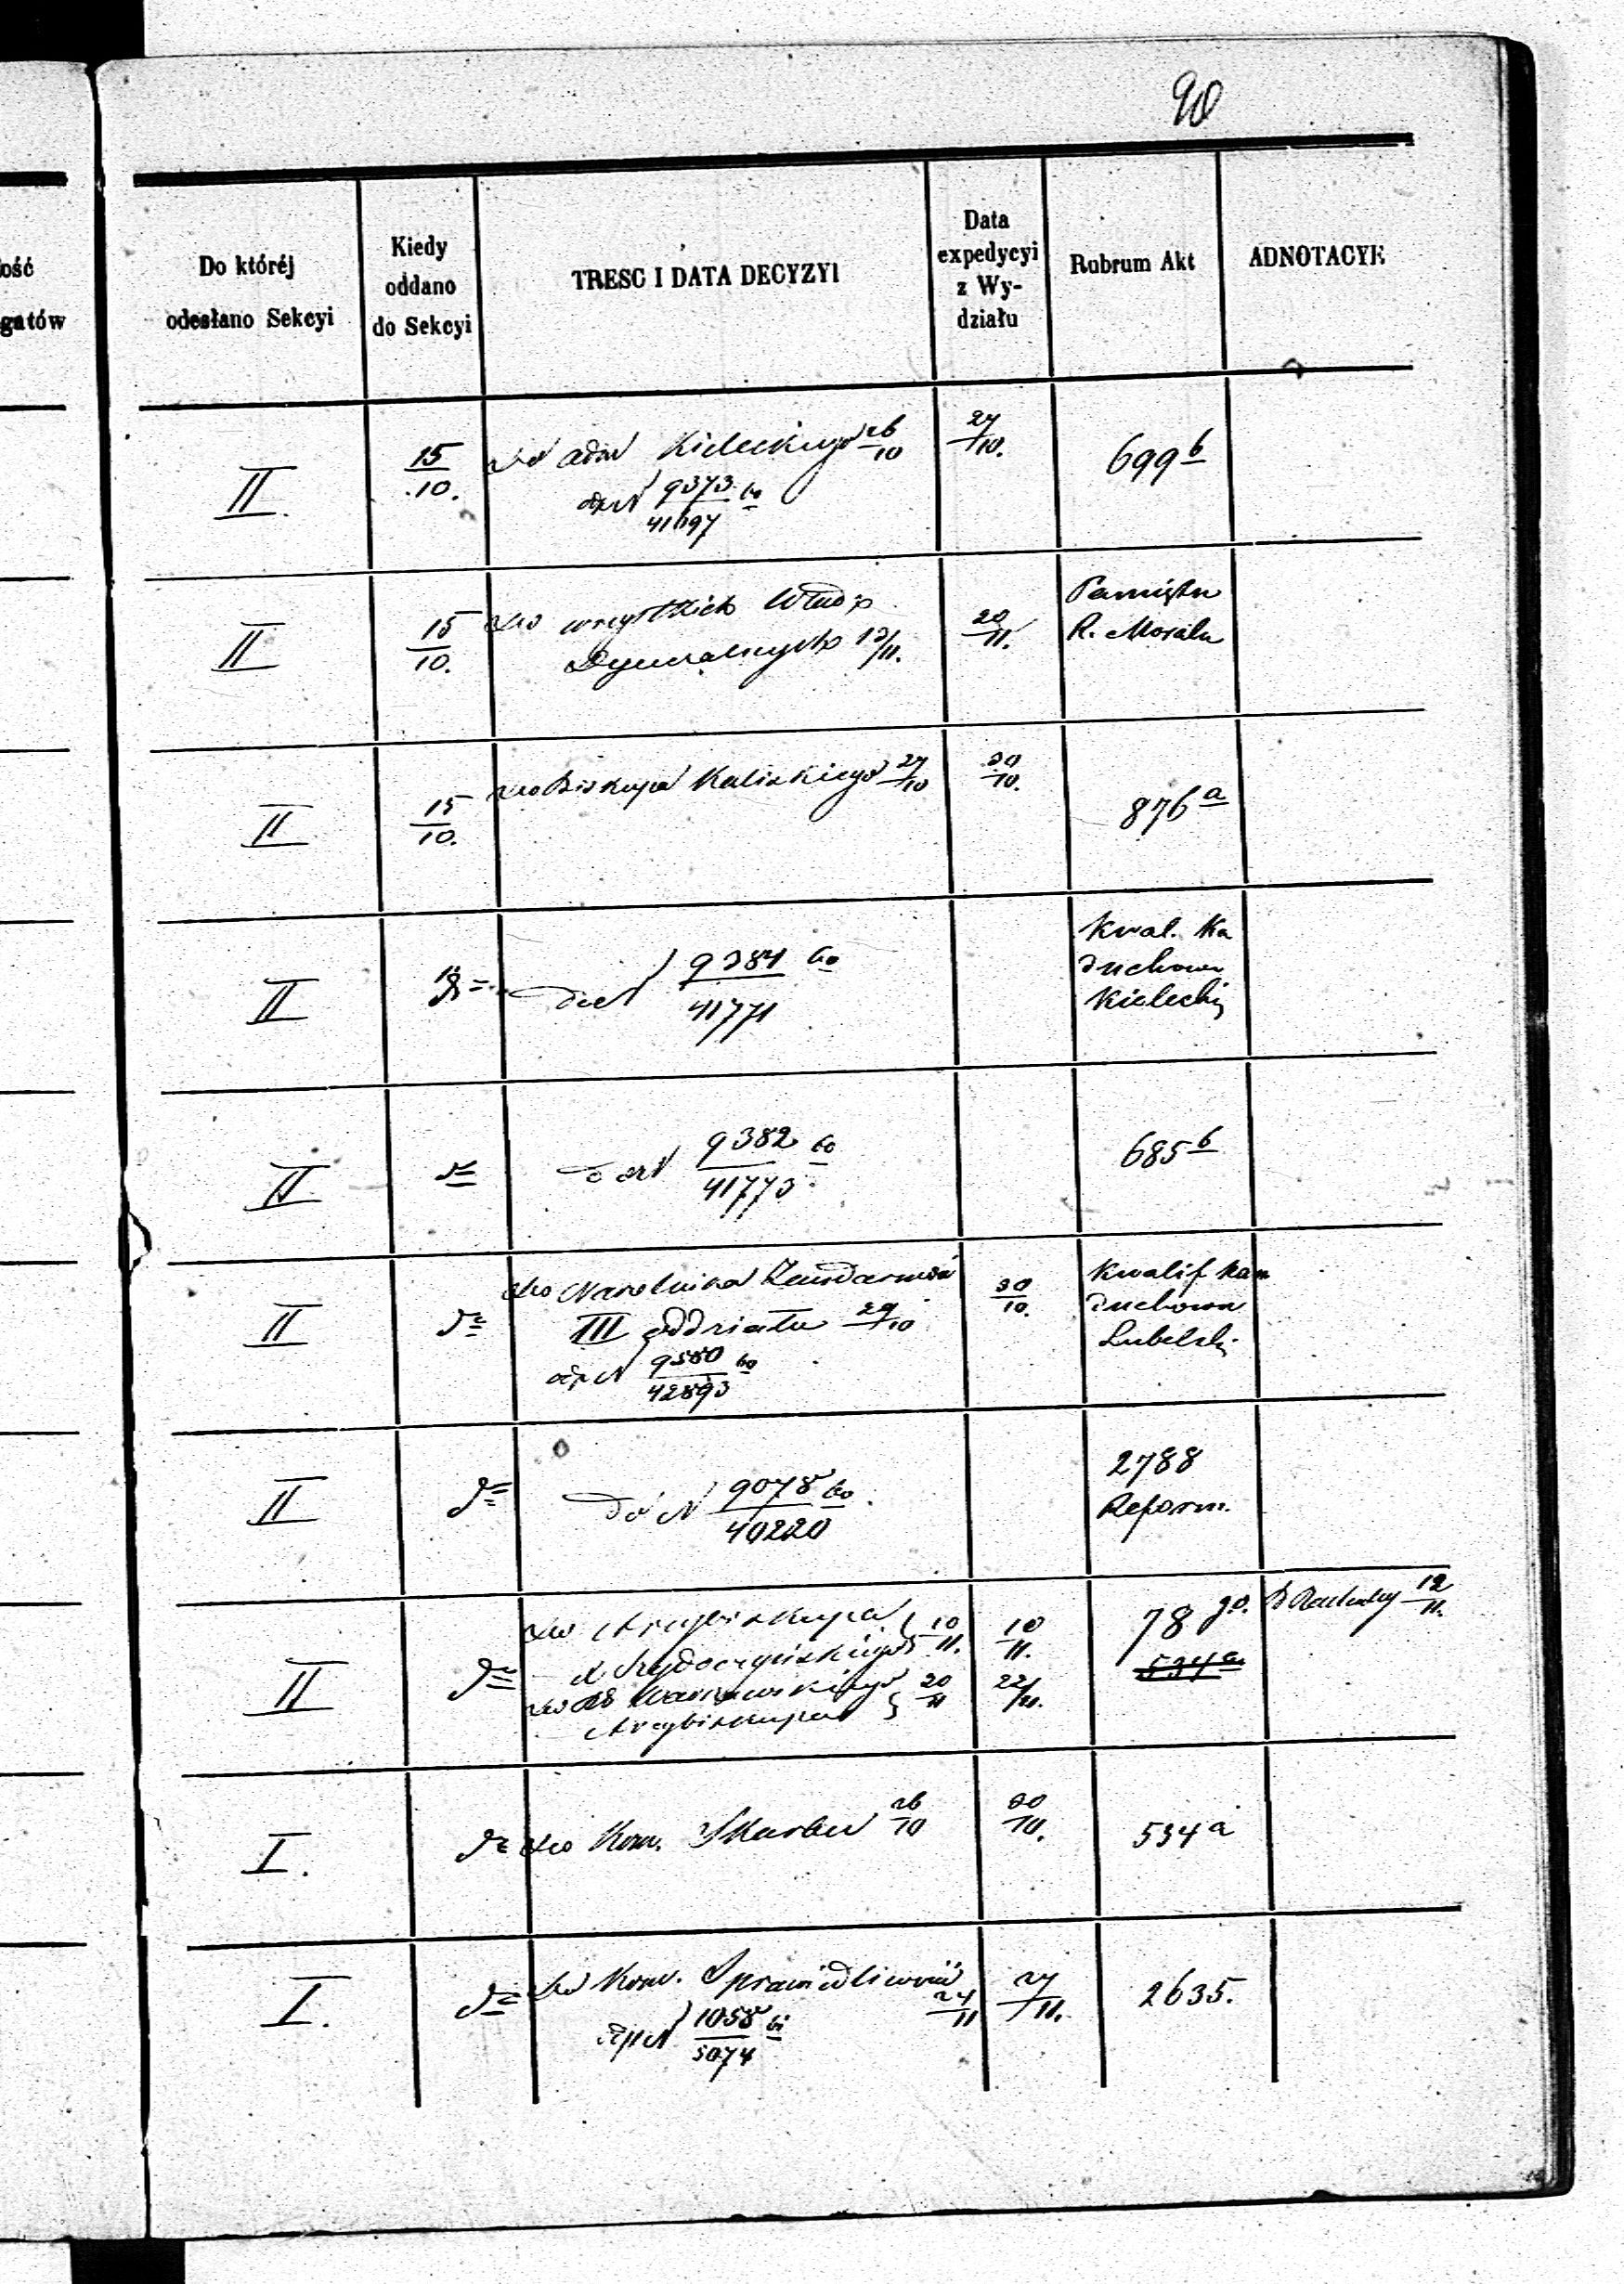 90
ość
gatów
Do któréj
odesłano Sekcyi
Kiedy
oddano
do Sekcyi
TRESC I DATA DECYZYI
Data
expedycyi
z Wy-
działu
Rubrum Akt
ADNOTACYE
II.
15/10.
Do adm Kieleckiego 26/10
9373/41697
27/10.
699 b
II
15/10.
Do wszystkich Władz
Dyecezalnych 13/11.
20/11.
R.
II
15/10.
Do Biskupa Kaliskiego 27/10
30/10.
876 a
II
do N 9384/41771
Kwal. Ka
duchown
Kielecki
II
do N 9382/41773
685 b
II
Do Naczelnika Żandarmów
III oddziału 29/10
N 9580/42893
30/10.
Kwalif Kan
duchown
Lubelski
II
do N 9078/40220
2788
Reform.
II
Do Arcybiskupa
10/11.
Do Warszawskiego 20/11
Arcybiskupa
10/11.
22/11.
78
534 a
12/11.
I.
Do Kom. Skarbu 26/10
30/10.
534 a
I.
Do Kom. Sprawiedliwości
24/11
N 1058/5074
27/11.
2635.